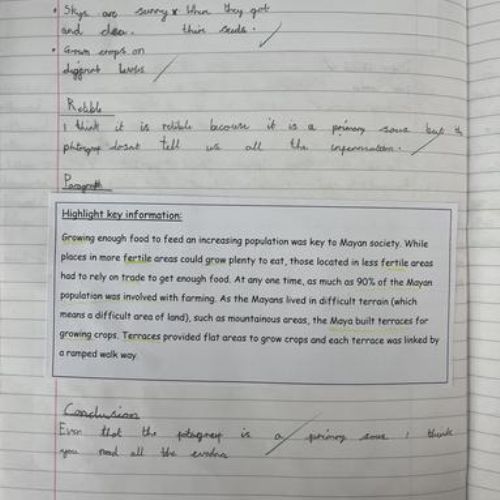 • Skys are sunny x When they got
and clea. thin seeds.
• Grown crops on
diggrent levels
Relible
I think it is relible becouse it is a primary sous but th
photograp dosnt tell us all the
Paragrath
Highlight key information:
Growing enough food to feed an increasing population was key to Mayan society. While
places in more fertile areas could grow plenty to eat, those located in less fertile areas
had to rely on trade to get enough food. At any one time, as much as 90% of the Mayan
population was involved with farming. As the Mayans lived in difficult terrain (which
means a difficult area of land), such as mountainous areas, the Maya built terraces for
growing crops. Terraces provided flat areas to grow crops and each terrace was linked by
a ramped walk way
Conclusion
Even thot the is a primary sous I think
you need all the